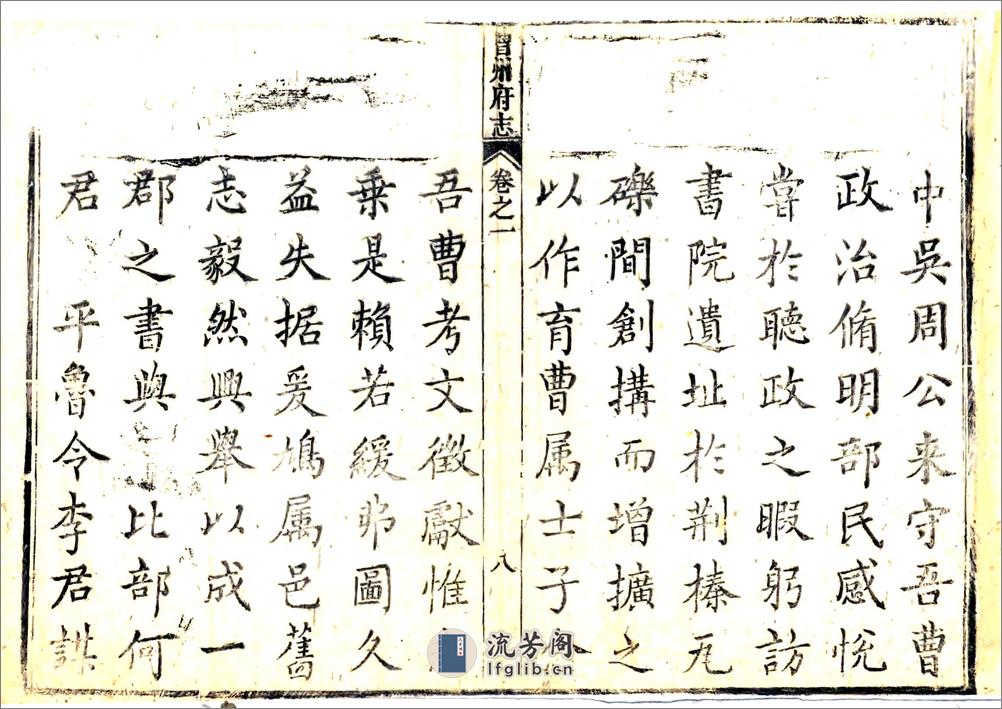 中吳周公来守吾曹
政治脩明部民感悅
嘗於聽政之暇躬訪
書院遺址於荆榛瓦
礫間創搆而增擴之
以作育曹属士子
曹州府志
卷之一
八
吾曹考文徵獻惟
乗是賴若緩弗圖久
益失据爰鳩属邑舊
志毅然興舉以成一
郡之書與
比部何
君
平魯令李君諜
流芳阁
lfglib.cn